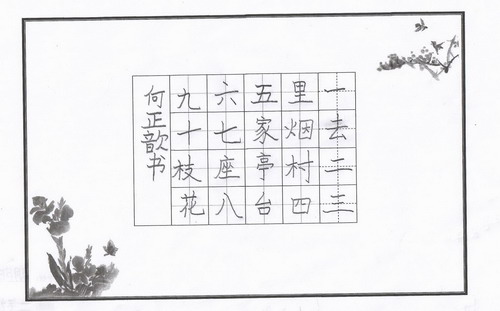 一去二三
里烟村四
五家亭台
六七座八
九十枝花
何正歆书